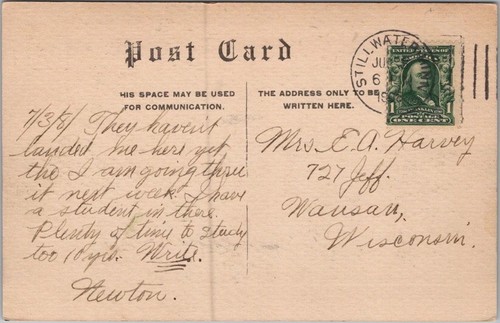 Post Card
HIS SPACE MAY BE USED
FOR COMMUNICATION.
THE ADDRESS ONLY TO BE
WRITTEN HERE.
STILLWATER
6
ONE CENT
They haven't
landed me here yet
tho I am going thru
it next week. I have
a student in there.
Plenty of time to study
too 10 yrs. Write.
Newton.
Mrs. E. A. Harvey
727 Jeff.
Wausau,
Wisconsin.